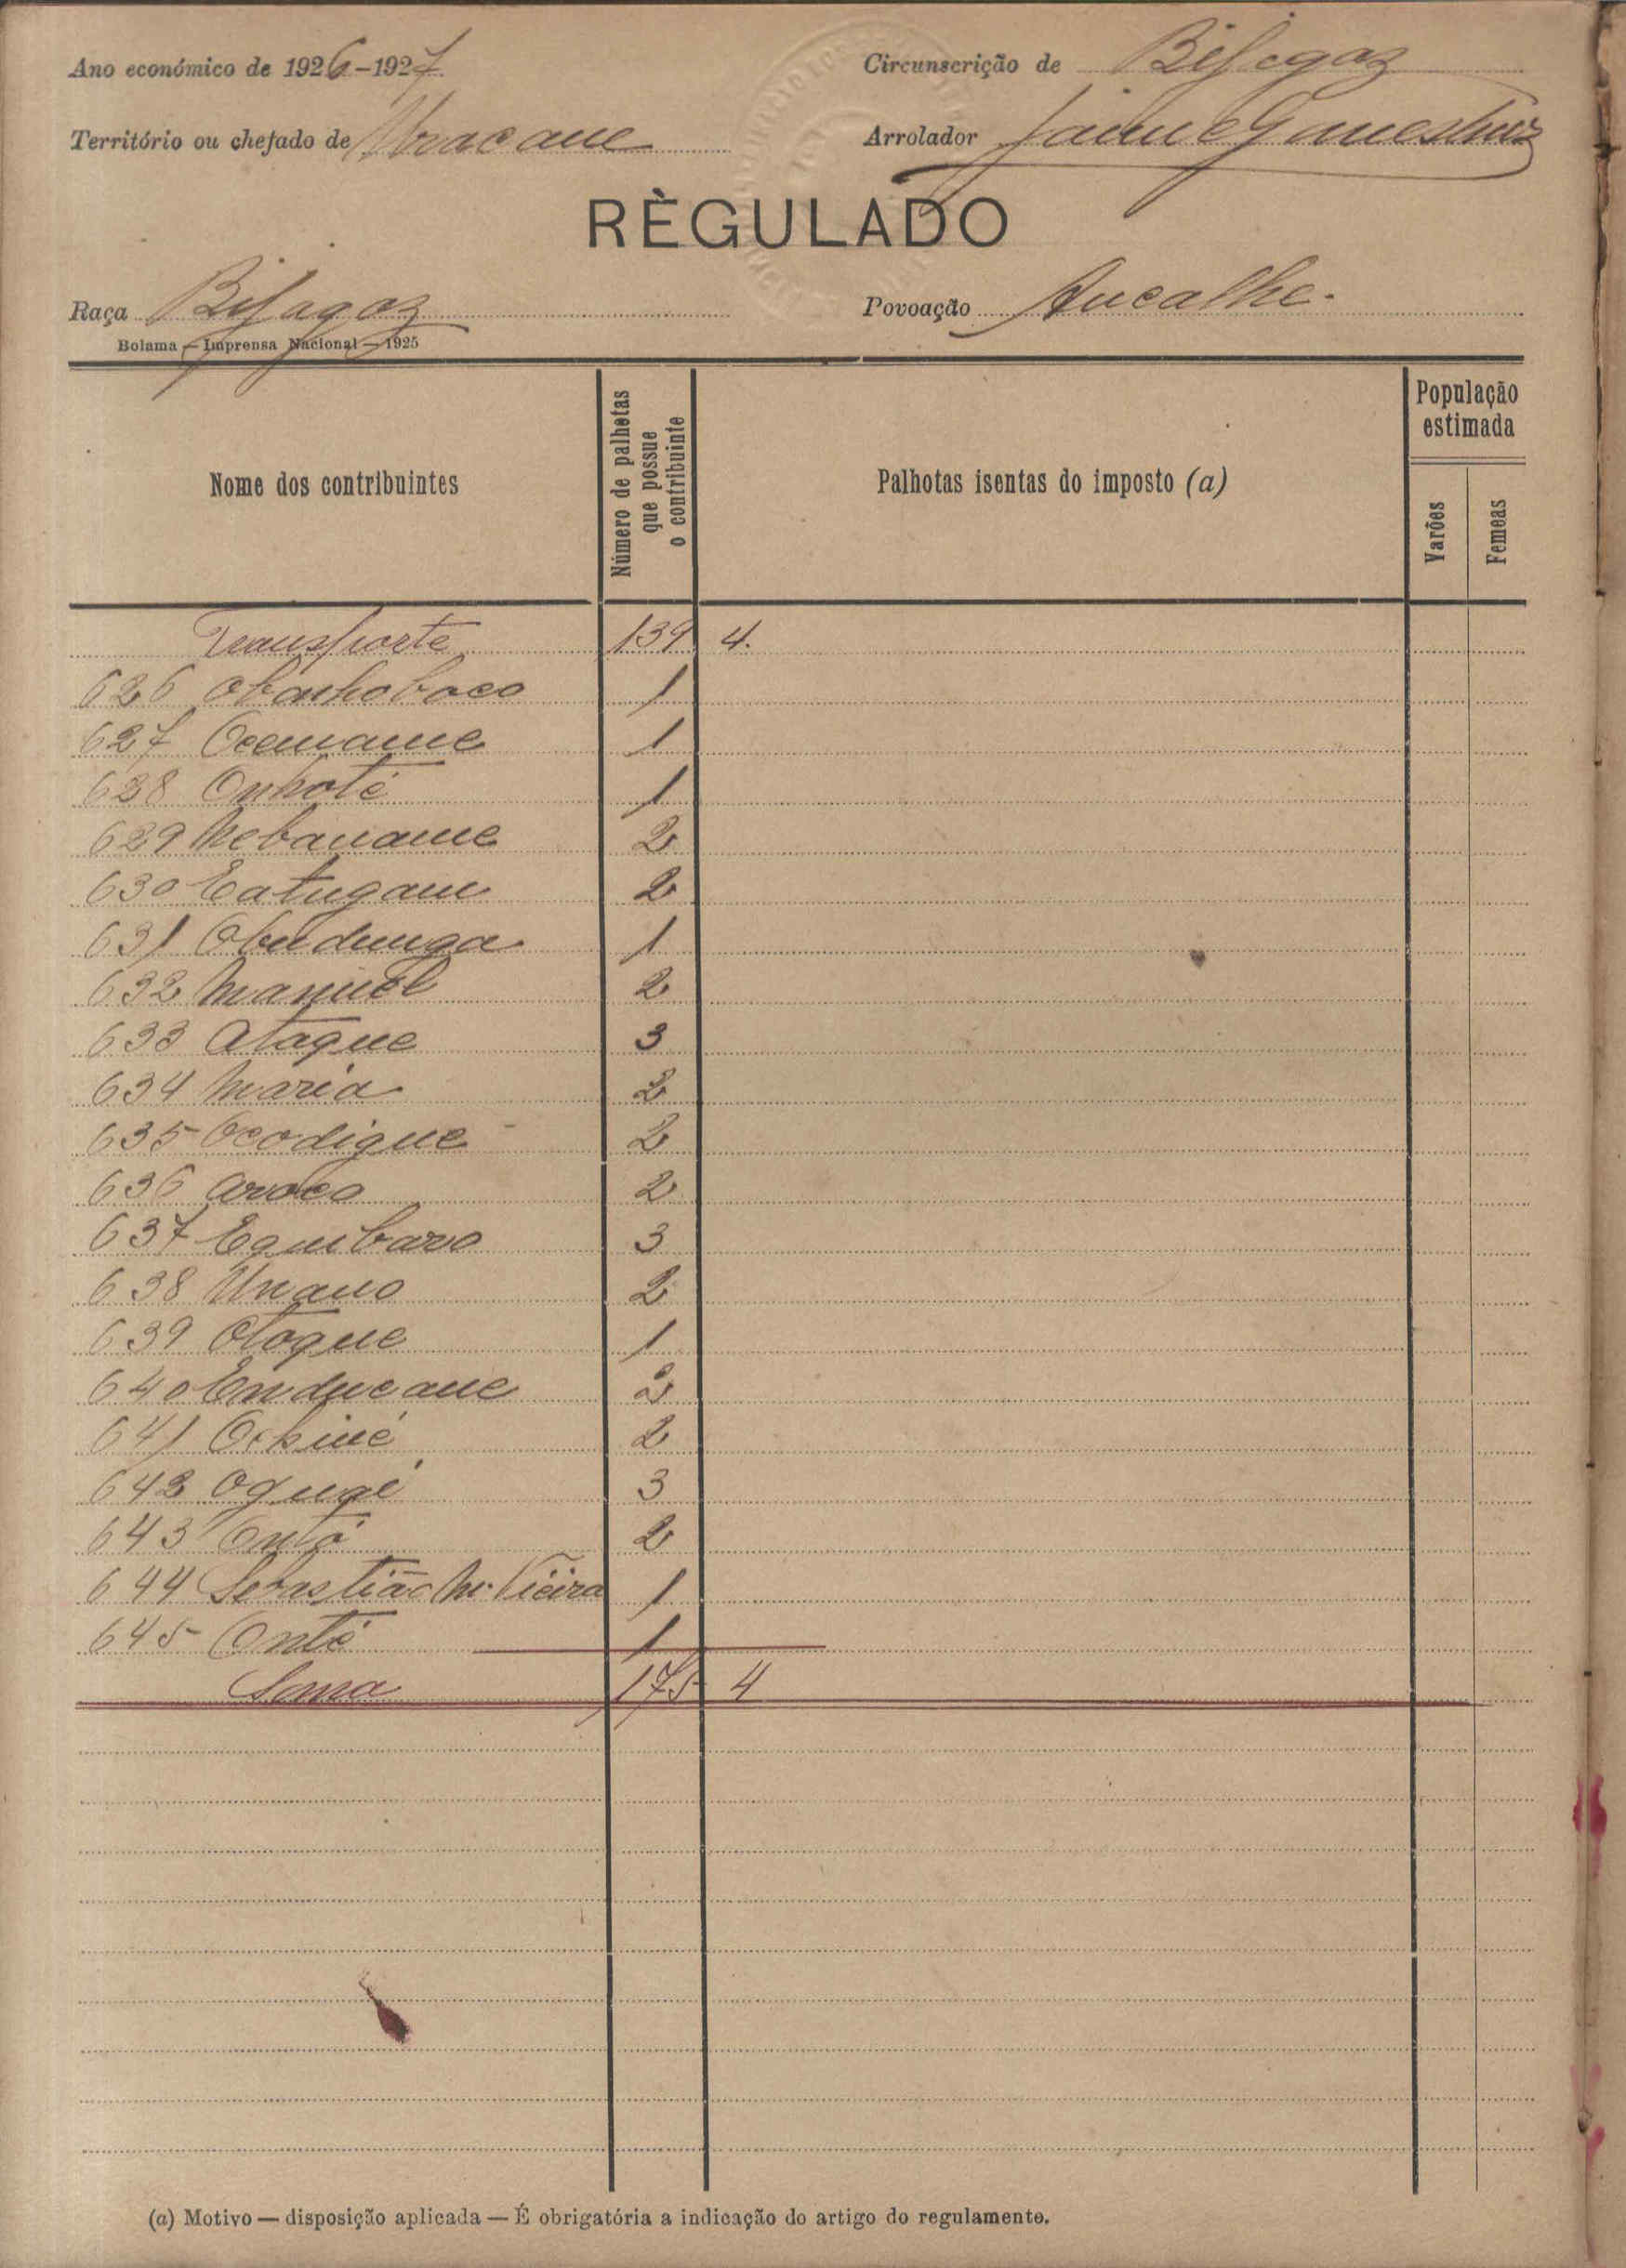 Ano económico de 1926-1927
Circunscrição de Bijagoz
Território ou chefado de Uracane
Arrolador Jaime
RÈGULADO
Raça Bijagoz
Povoação Ancalhe.
Bolama — Imprensa Nacional — 1925
Nome dos contribuintes
Número de palhotas que possue o contribuinte
Palhotas isentas do imposto (a)
População estimada
Varões
Femeas
Transporte 139 4.
626 Obanhoboco 1
627 Ocemame 1
628 Onhoté 1
629 Nebaname 2
630 Eatugam 2
631 Obudunga 1
632 Manuel 2
633 Ataque 3
634 Maria 2
635 Ocodique 2
636 Aroco 2
637 Equibaro 3
638 Unano 2
639 Otoque 1
640 Enducane 2
641 2
642 3
643 Ontó 2
644 Sebastião M. Vieira 1
645 Onté 1
Soma 175 4
(a) Motivo — disposição aplicada — É obrigatória a indicação do artigo do regulamento.